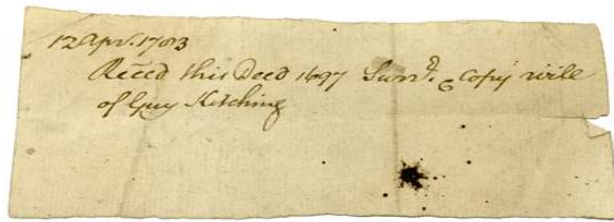 12 Apr. 1783
Recēd this Deed 1697 Surrr. & Copy will
of Guy Kitching